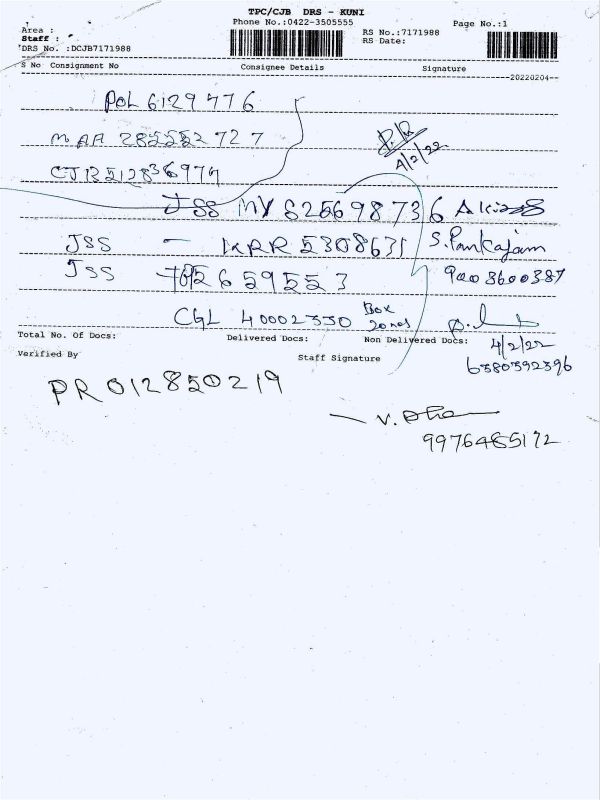 TPC/CJB DRS - KUNI
Area :
Phone No.:0422-3505555
Page No.:1
Staff :
RS No.:7171988
DRS No. :DCJB7171988
RS Date:
S No Consignment No Consignee Details Signature
20220204
POL 6129776
MAA 285552727
4/2/22
CJB512836977
JSS MYS 25698736
JSS - KRR 5308631 S. Pankajam
JSS 765659553 9003600387
CGL 40002330 Box 20nos
Total No. Of Docs: Delivered Docs: Non Delivered Docs:
4/2/22
Verified By Staff Signature
6380392396
PR012850219
9976485172